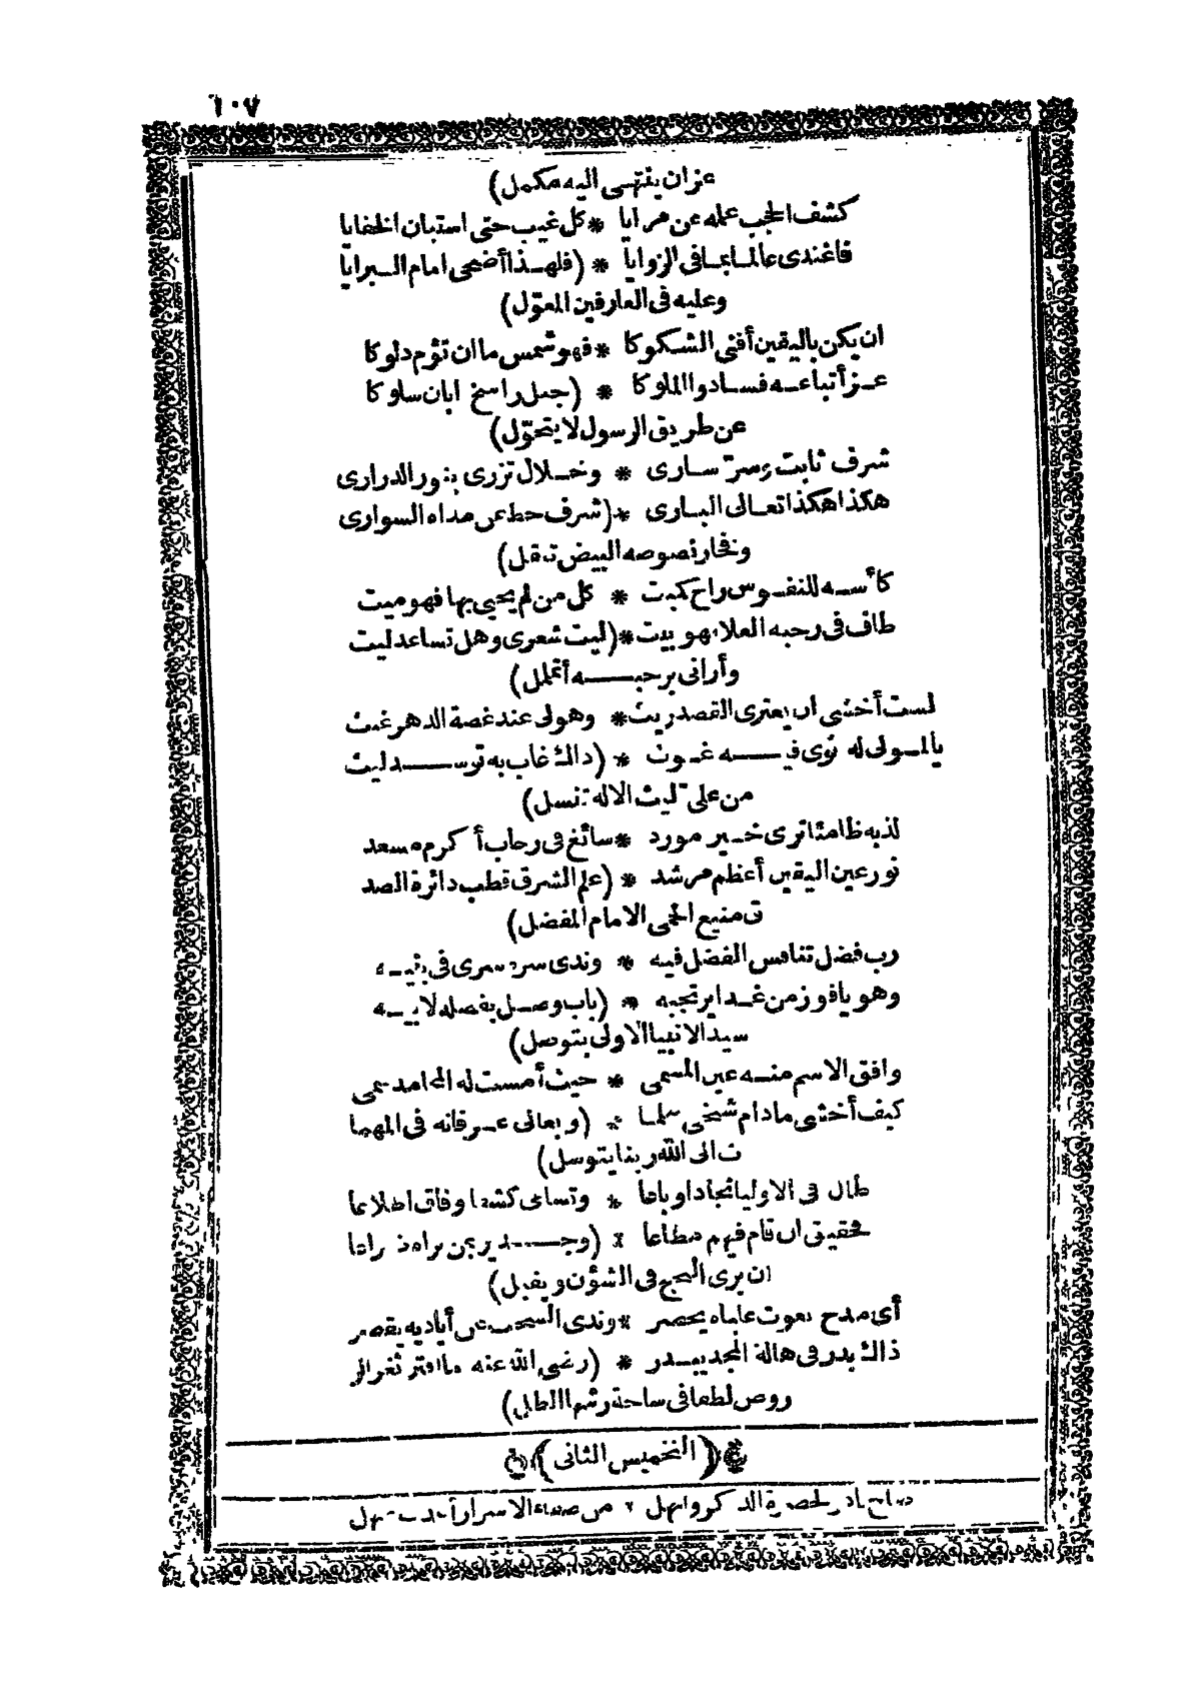 ١٠٧
عزان ينتهى اليه مكمل)
كشف الحجب علمه عن مرايا * كل غيب حتى استبان الخفايا
فاغتدى عالما بما فى الزوايا * (فلهذا أضحى امام البرايا
وعليه فى العارفين المعوّل)
ان يكن باليقين أفنى الشكوكا * فهو شمس ما ان تؤم دلوكا
عز أتباعه فسادوا الملوكا * (جبل راسخ ابان سلوكا
عن طريق الرسول لا يتحوّل)
شرف ثابت وسرّ سارى * وخلال تزرى بنور الدرارى
هكذا هكذا تعالى البارى * (شرف حط عن مداه السوارى
وفخار نصوصه البيض تنقل)
كأسه للنفوس راح كميت * كل من لم يحيى بها فهو ميت
طاف فى رحبه العلا فهو بيت * (ليت شعرى وهل تساعد ليت
وأرانى برحبه أتململ)
لست أخشى ان يعترى القصد ريث * وهو لى عند غصة الدهر غيث
يالمولى له توى فيه غوث * (ذاك غاب به توسد ليث
من على ليث الاله تنسل)
لذ به ظامئا ترى خير مورد * سائغ فى رحاب أكرم مسعد
نور عين اليقين أعظم مرشد * (علم الشرق قطب دائرة الصد
ق منيع الحمى الامام المفضل)
رب فضل تنافس الفضل فيه * وندى سر سرى فى بنيه
وهو يا فوز من غدا يرتجيه * (باب وصل بفضله لابيه
سيد الانبيا الاولى يتوصل)
وافق الاسم منه عين المسمى * حيث أمست له المحامد تنمى
كيف أخشى مادام شيخى * (وبعالى عرفانه فى المهما
ت الى الله ربنا يتوسل)
طال فى الاوليا نجادا وباعا * وتسامى كشفا وفاق اطلاعا
فحقيق ان قام فيهم مطاعا * (وجدير بمن يراه
ان يرى النجح فى الشؤن ويقبل)
أى مدح نعوت علياه يحصر * وندى السحب عن أياديه يقصر
ذاك بدر فى هالة المجد يبدر * (رضى الله عنه ما افتر ثغر الر
روض لطفا فى ساحة رشها الطل)
(التخميس الثانى)
صاح بادر لحضرة الذكر وانهل * من صفاء الاسرار أعذب منهل